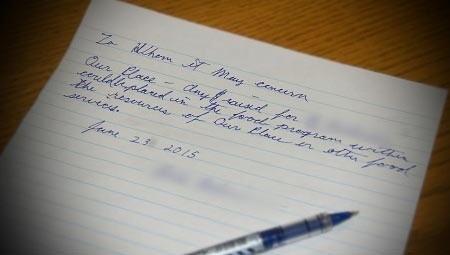 To Whom it May concern
Our Place - any $ raised for
could be placed in the food program within
the resources of Our Place or other food
services.
June 23, 2015